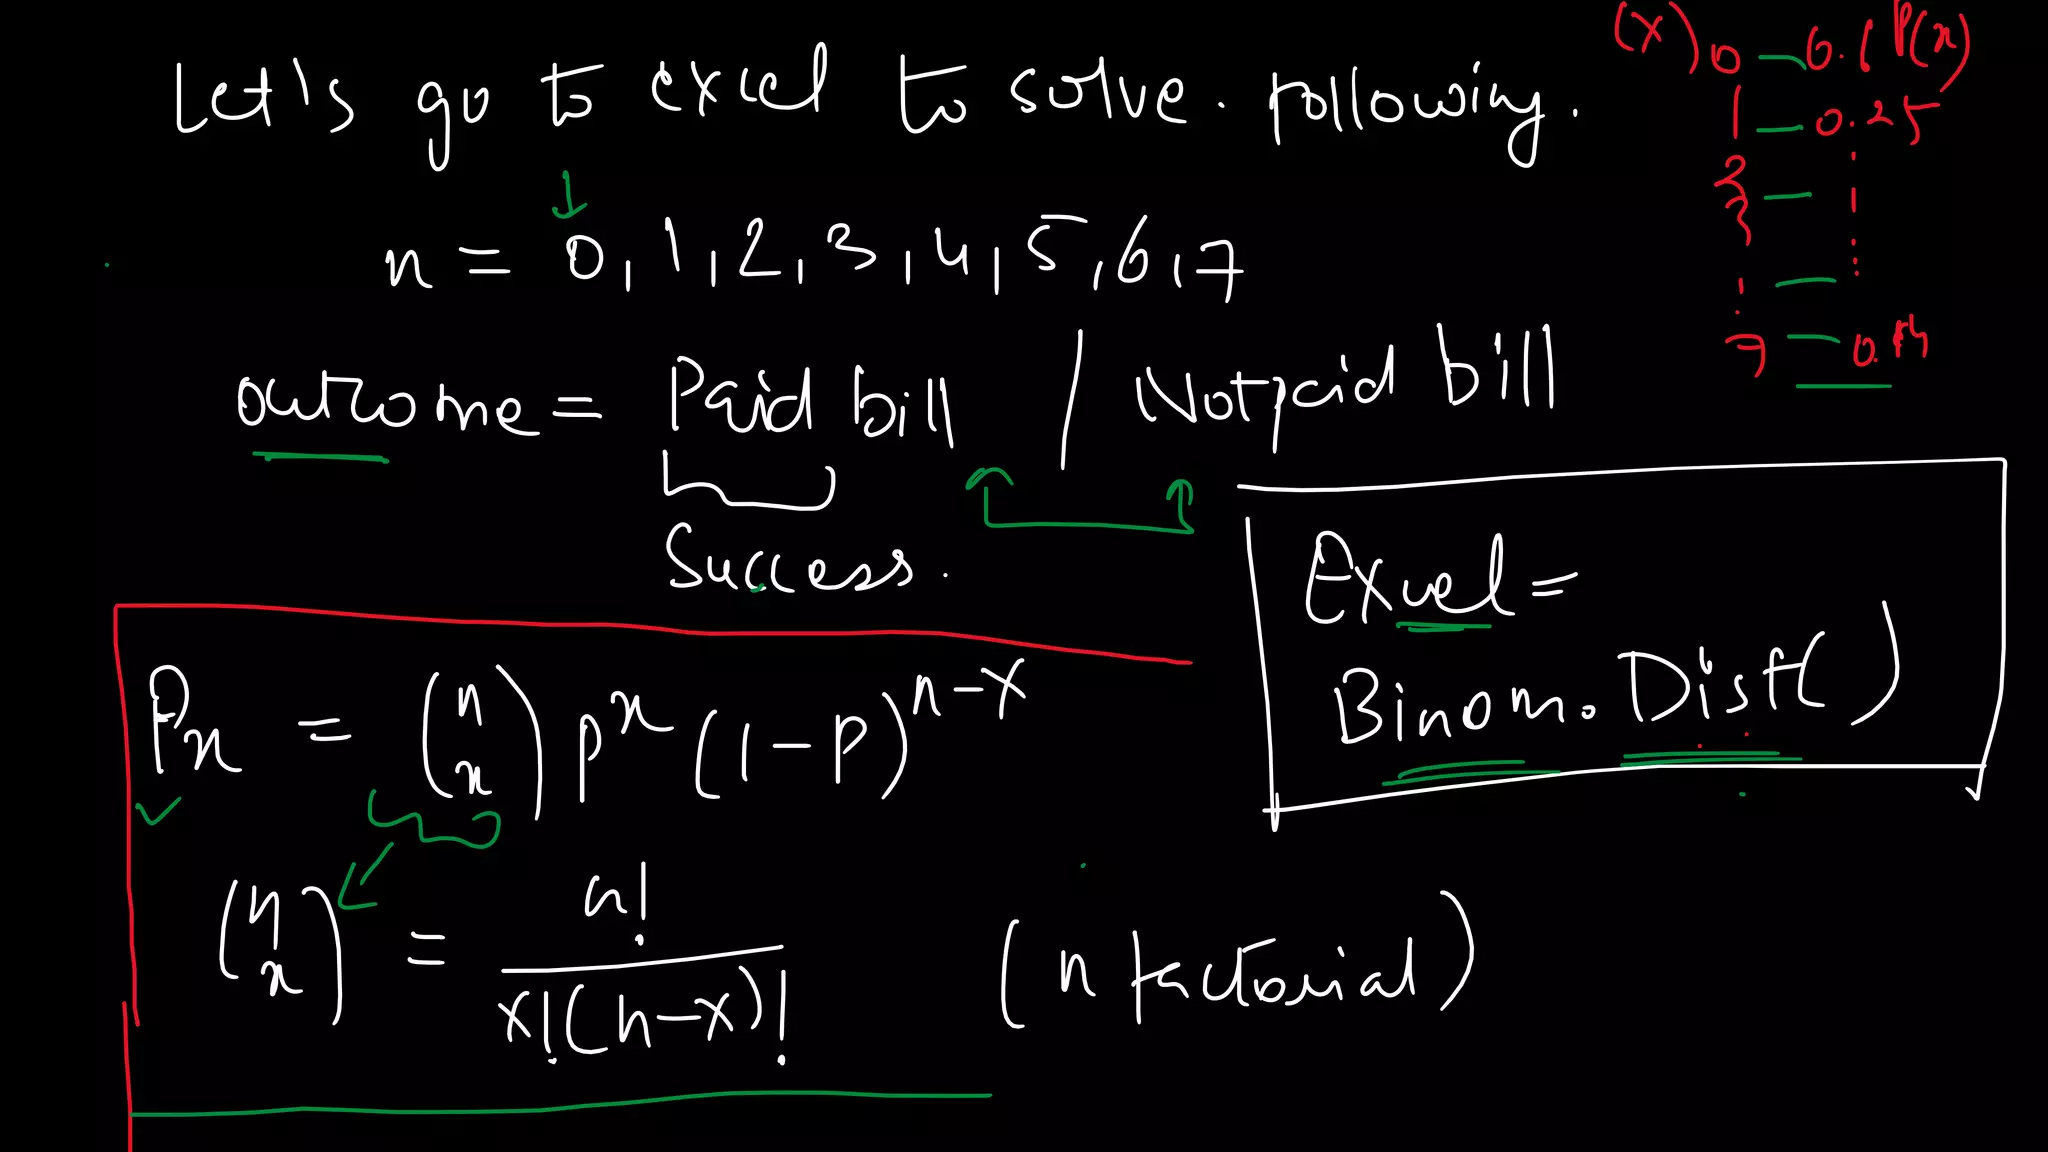 Let's go to excel to solve. following.
n = 0, 1, 2, 3, 4, 5, 6, 7
outcome = Paid bill / Not paid bill
Success.
(X) P(x)
0 — 0.1
1 — 0.25
2 —
3
7 — 0.14
Excel =
Binom.Dist( )
Px = (n x) p^x (1-P)^n-x
(n x) = n! / x!(n-x)! (n factorial)